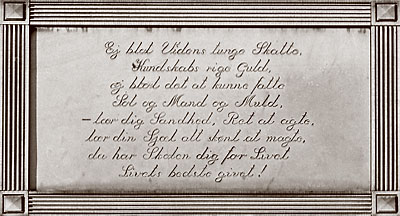 Ej blot Videns tunge Skatte,
Kundskabs rige Guld,
ej blot det at kunne fatte
Sol og Mand og Muld,
– lær dig Sandhed, Ret at agte,
lær din Sjæl alt skønt at magte,
da har Skolen dig for Livet
Livets bedste givet!